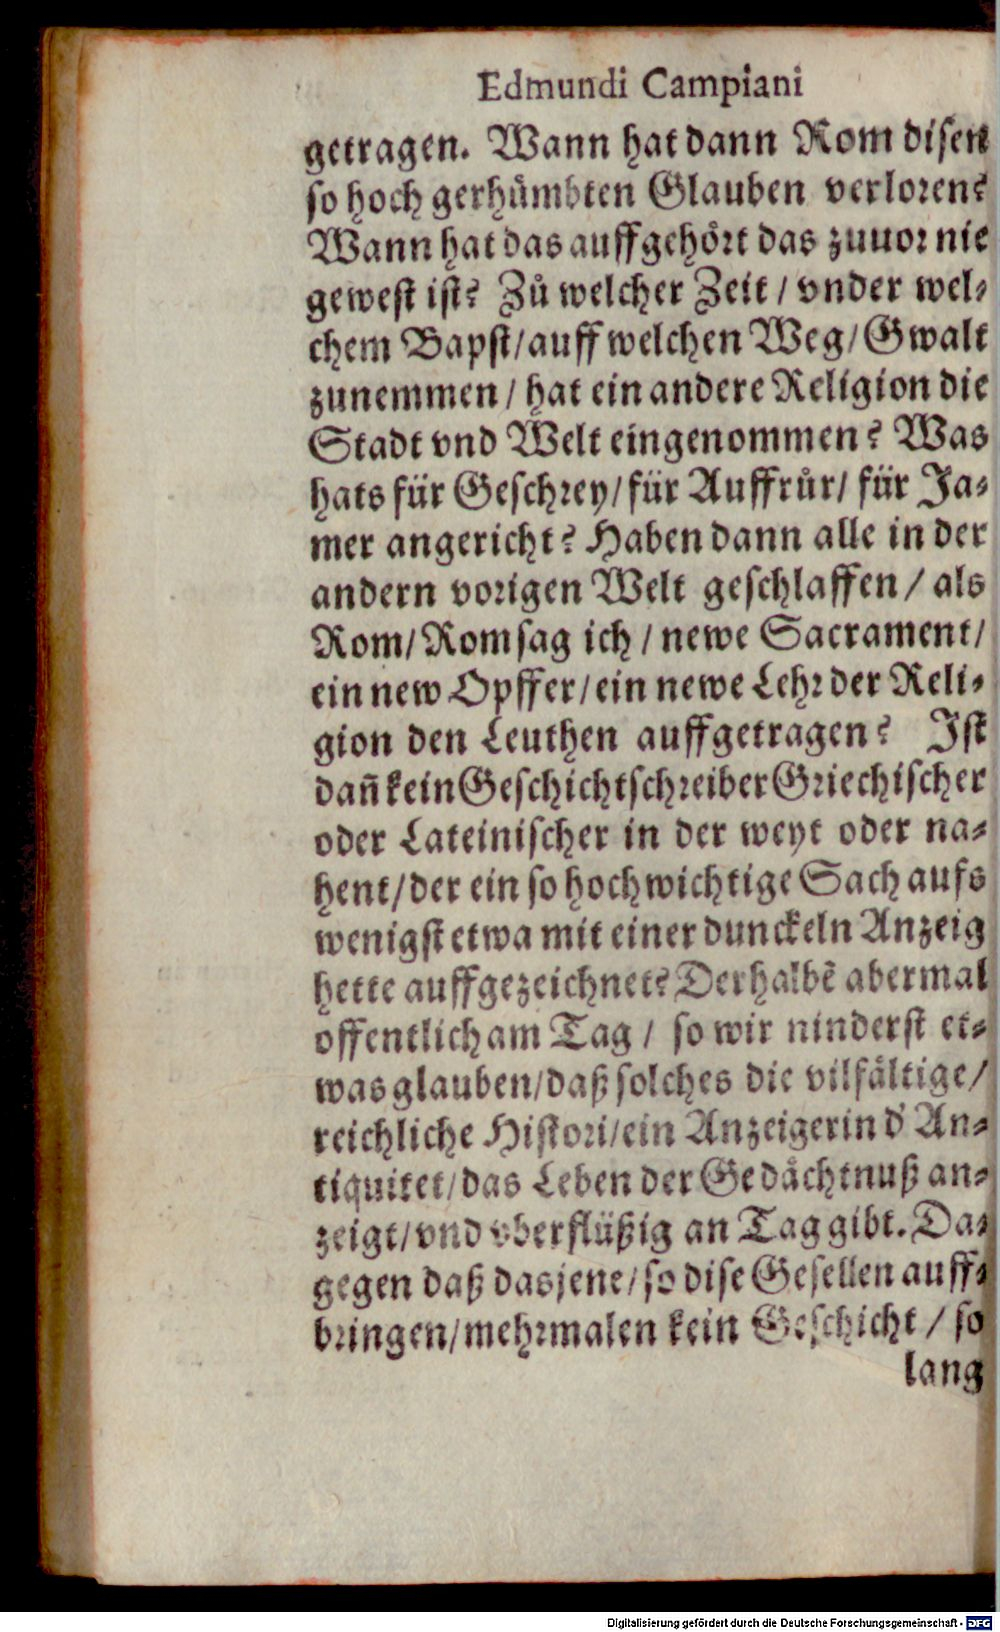 Edmundi Campiani
getragen. Wann hat dann Rom disen
so hoch gerhuͤmbten Glauben verloren?
Wann hat das auffgehoͤrt das zuuor nie
gewest ist? Zuͦ welcher Zeit / vnder wel⸗
chem Bapst/auff welchen Weg/Gwalt
zunemmen / hat ein andere Religion die
Stadt vnd Welt eingenommen? Was
hats für Geschrey/für Auffruͦr/ für Ja⸗
mer angericht? Haben dann alle in der
andern vorigen Welt geschlaffen / als
Rom/Rom sag ich / newe Sacrament/
ein new Opffer/ein newe Lehr der Reli⸗
gion den Leuthen auffgetragen? Ist
dañ kein Geschichtschreiber Griechischer
oder Lateinischer in der weyt oder na⸗
hent/der ein so hochwichtige Sach aufs
wenigst etwa mit einer dunckeln Anzeig
hette auffgezeichnet? Derhalbẽ abermal
offentlich am Tag / so wir ninderst et⸗
was glauben/daß solches die vilfaͤltige/
reichliche Histori/ein Anzeigerin d' An⸗
tiquitet/das Leben der Gedaͤchtnuß an⸗
zeigt/vnd vberflüßig an Tag gibt. Da⸗
gegen daß dasjene/so dise Gesellen auff⸗
bringen/mehrmalen kein Geschicht / so
lang
Digitalisierung gefördert durch die Deutsche Forschungsgemeinschaft - DFG